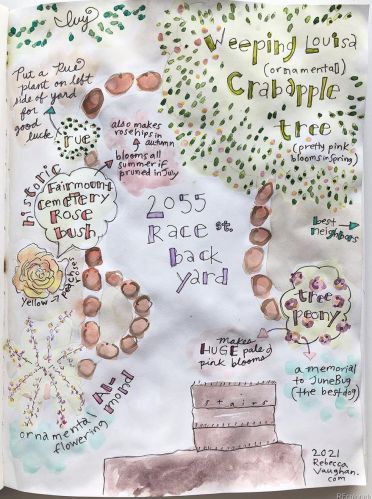 Ivy
Weeping Louisa
(ornamental)
Crabapple
tree
(pretty pink
blooms in spring)
Put a Rue
plant on left
side of yard
for
good
luck
rue
also makes
rosehips in
autumn
blooms all
summer if
pruned in July
historic
Fairmount
Cemetery
Rose
bush
yellow → peach roses
2055
Race st.
back
yard
best
neighbors
tree
peony
makes
HUGE pale
pink blooms
a memorial
to JuneBug
(the best dog)
ornamental
flowering
Almond
stairs
2021
Rebecca
Vaughan.
com